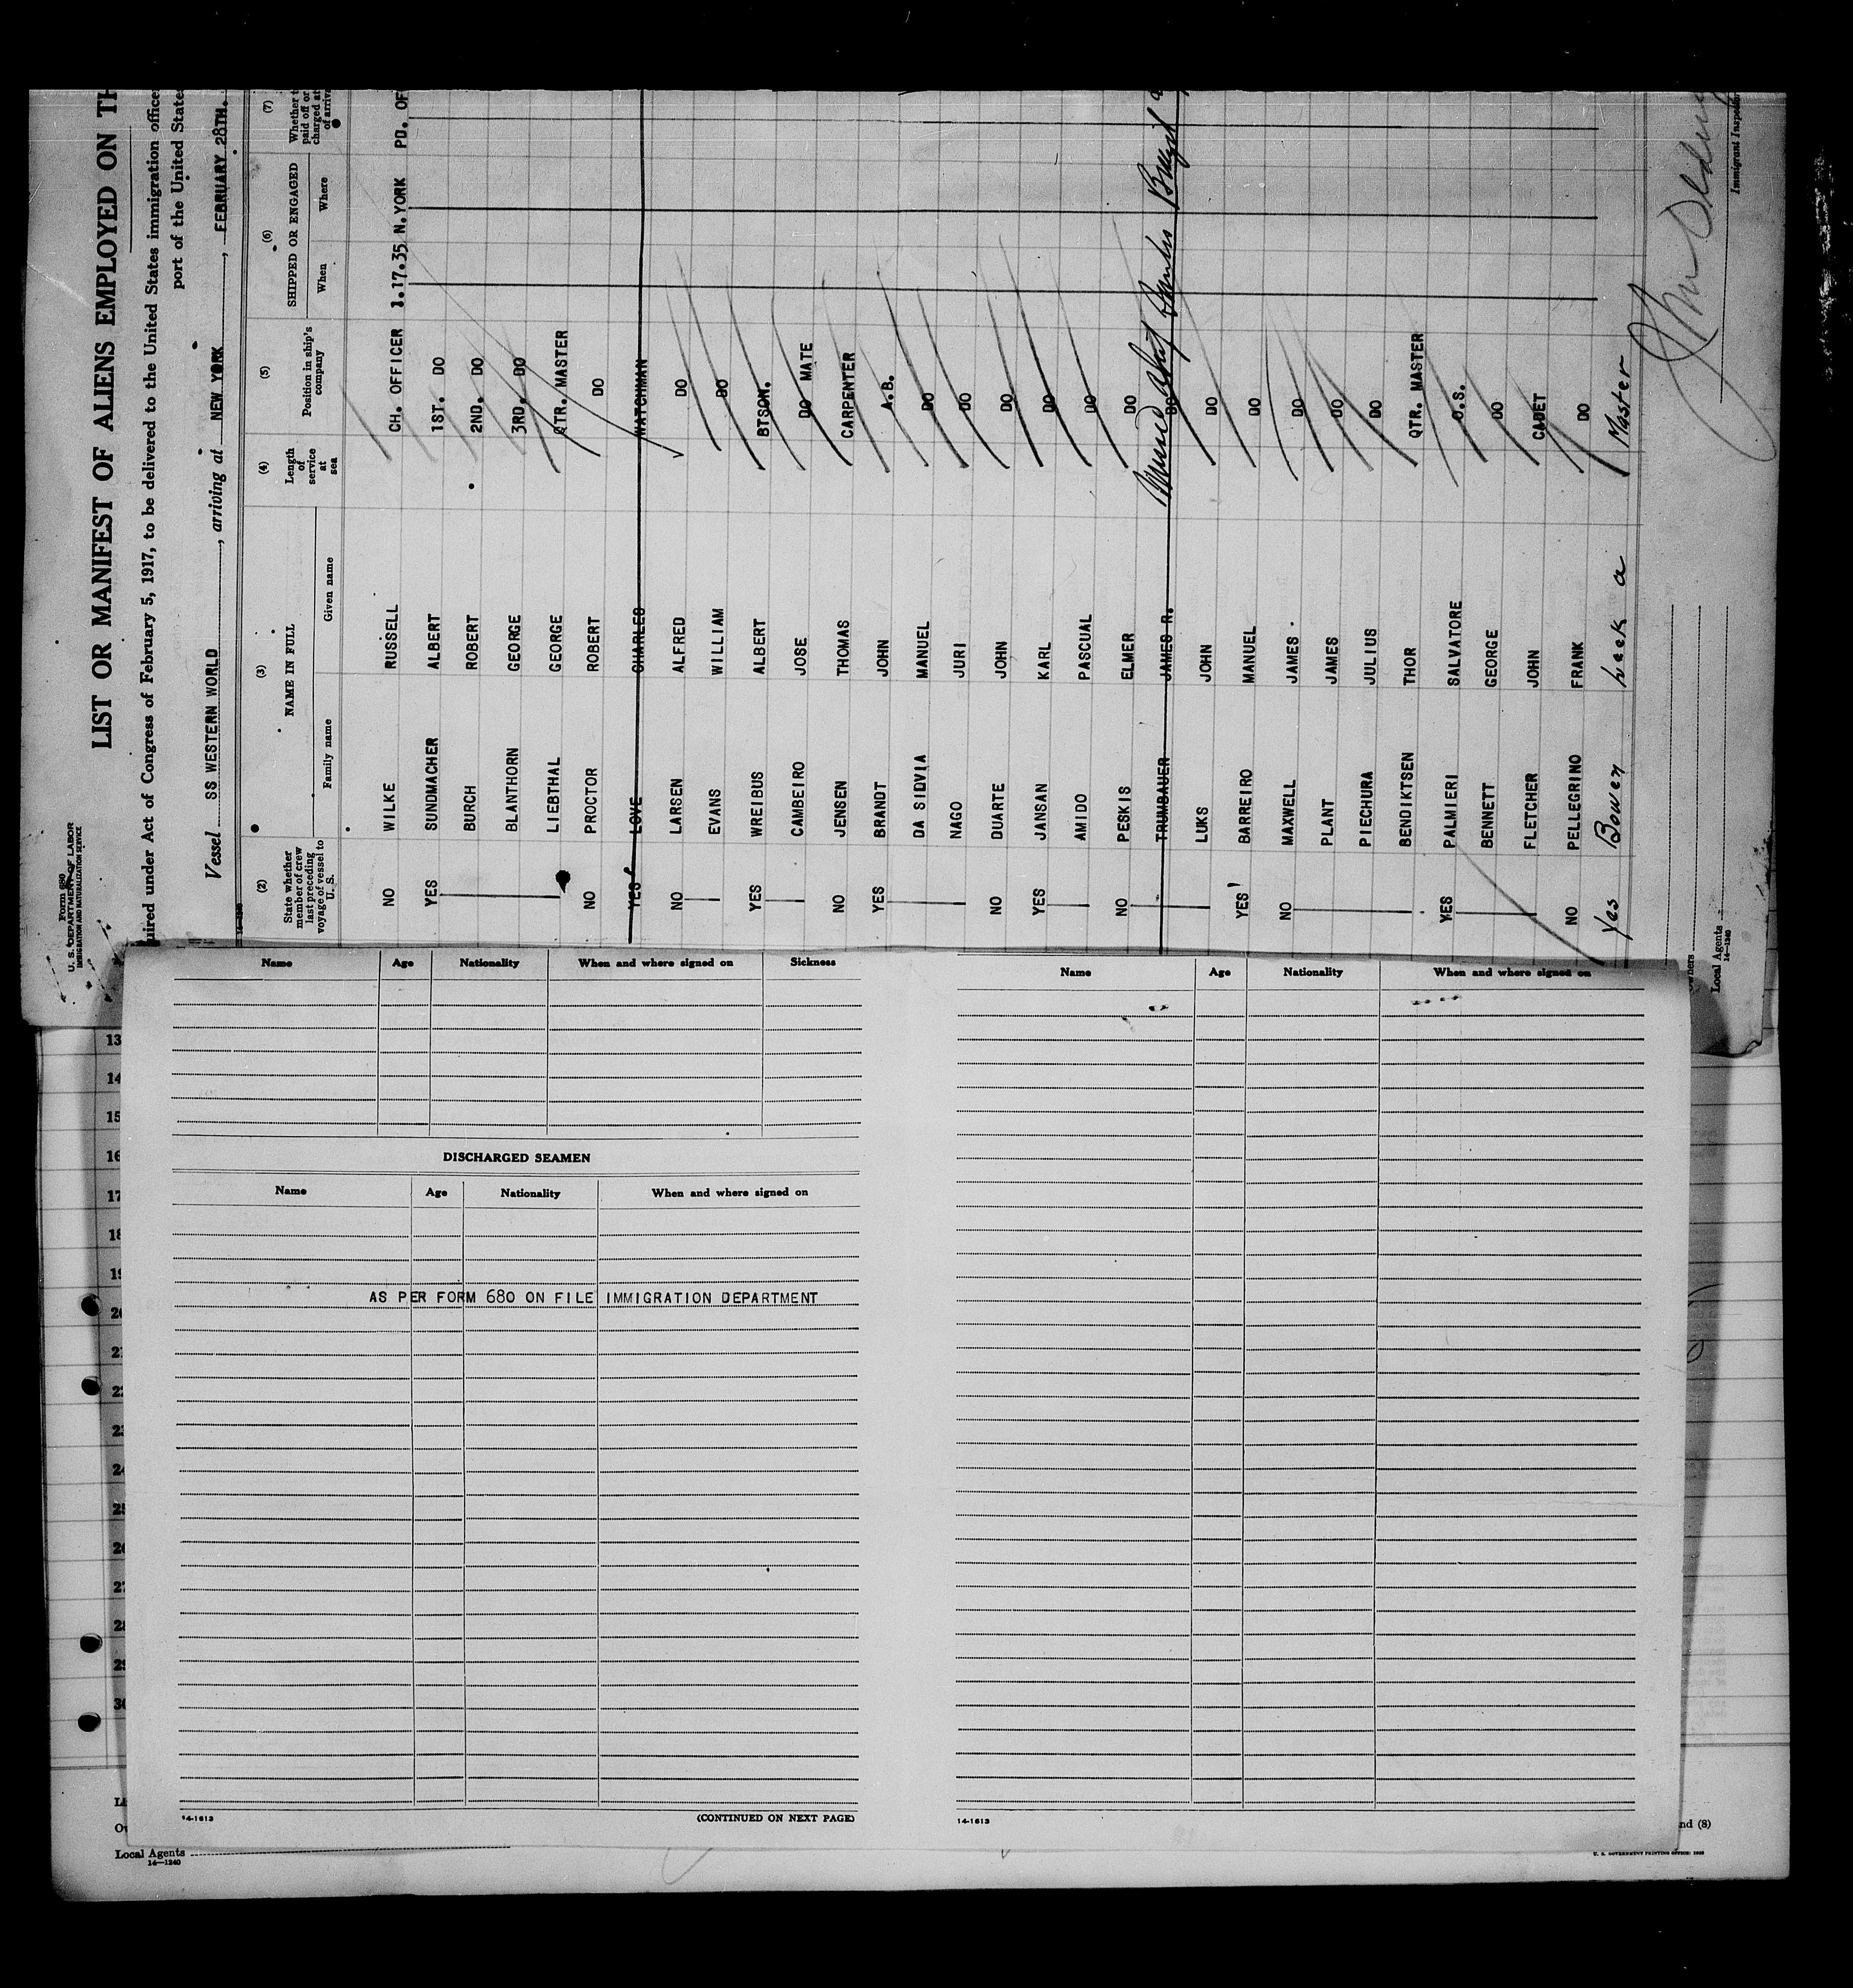 Form 680
U. S. DEPARTMENT OF LABOR
IMMIGRATION AND NATURALIZATION SERVICE
LIST OR MANIFEST OF ALIENS EMPLOYED ON TH
uired under Act of Congress of February 5, 1917, to be delivered to the United States immigration office
port of the United State
Vessel SS WESTERN WORLD, arriving at NEW YORK, FEBRUARY 28TH.
(2) (3) (4) (5) (6) (7)
State whether member of crew last preceding voyage of vessel to U. S.
NAME IN FULL
Family name Given name
Length of service at sea
Position in ship's company
SHIPPED OR ENGAGED
When Where
Whether t
paid off or
charged at
of arriva
NO WILKE RUSSELL CH. OFFICER 1.17.35 N.YORK PD. OF
YES SUNDMACHER ALBERT 1ST. DO
BURCH ROBERT 2ND. DO
BLANTHORN GEORGE 3RD. DO
LIEBTHAL GEORGE QTR. MASTER
NO PROCTOR ROBERT DO
YES LOVE CHARLES WATCHMAN
NO LARSEN ALFRED DO
EVANS WILLIAM DO
YES WREIBUS ALBERT BTSON.
CAMBEIRO JOSE DO MATE
NO JENSEN THOMAS CARPENTER
YES BRANDT JOHN A.B.
DA SIDVIA MANUEL DO
NAGO JURI DO
NO DUARTE JOHN DO
YES JANSAN KARL DO
AMIDO PASCUAL DO
NO PESKIS ELMER DO
TRUMBAUER JAMES R. DO Missed Ship Santos Brazil
LUKS JOHN DO
YES BARREIRO MANUEL DO
NO MAXWELL JAMES DO
PLANT JAMES DO
PIECHURA JULIUS DO
BENDIKTSEN THOR QTR. MASTER
YES PALMIERI SALVATORE O.S.
BENNETT GEORGE DO
FLETCHER JOHN CADET
NO PELLEGRINO FRANK DO
Yes Bowen Master
wners
Local Agents
14—1240
Immigrant Inspector
Name Age Nationality When and where signed on Sickness
DISCHARGED SEAMEN
Name Age Nationality When and where signed on
AS PER FORM 680 ON FILE IMMIGRATION DEPARTMENT
14-1613
(CONTINUED ON NEXT PAGE)
Name Age Nationality When and where signed on
14-1613
13
14
15
16
17
18
19
20
21
22
23
24
25
26
27
28
29
30
Local Agents
14—1240
nd (8)
U. S. GOVERNMENT PRINTING OFFICE